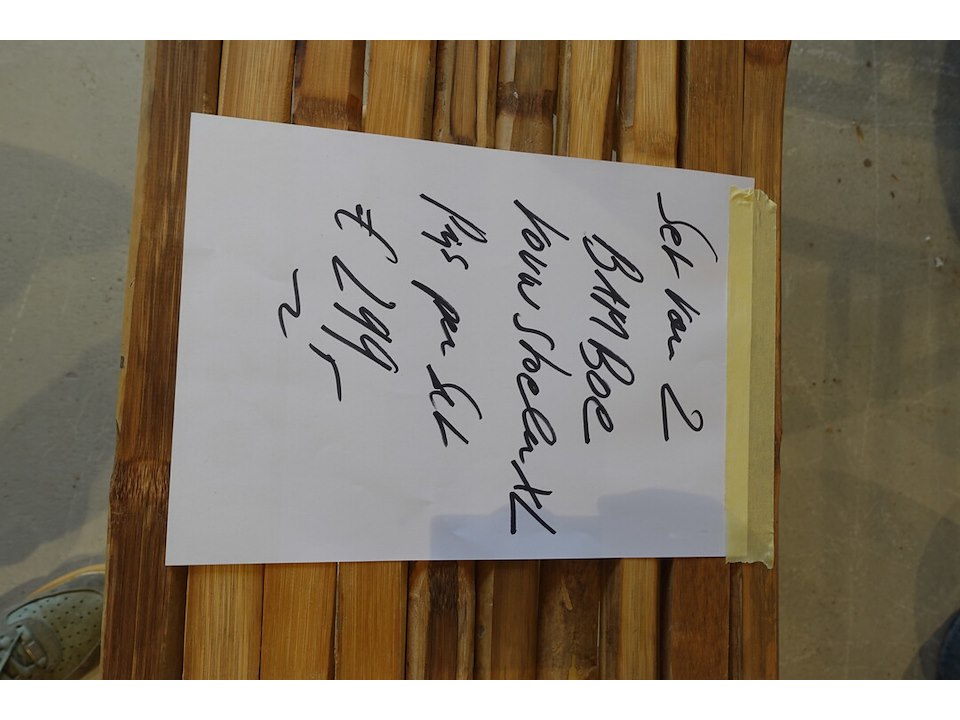 Set van 2
BAMBOE
Vouwstoelen XL
Prijs per Set
€ 299,-